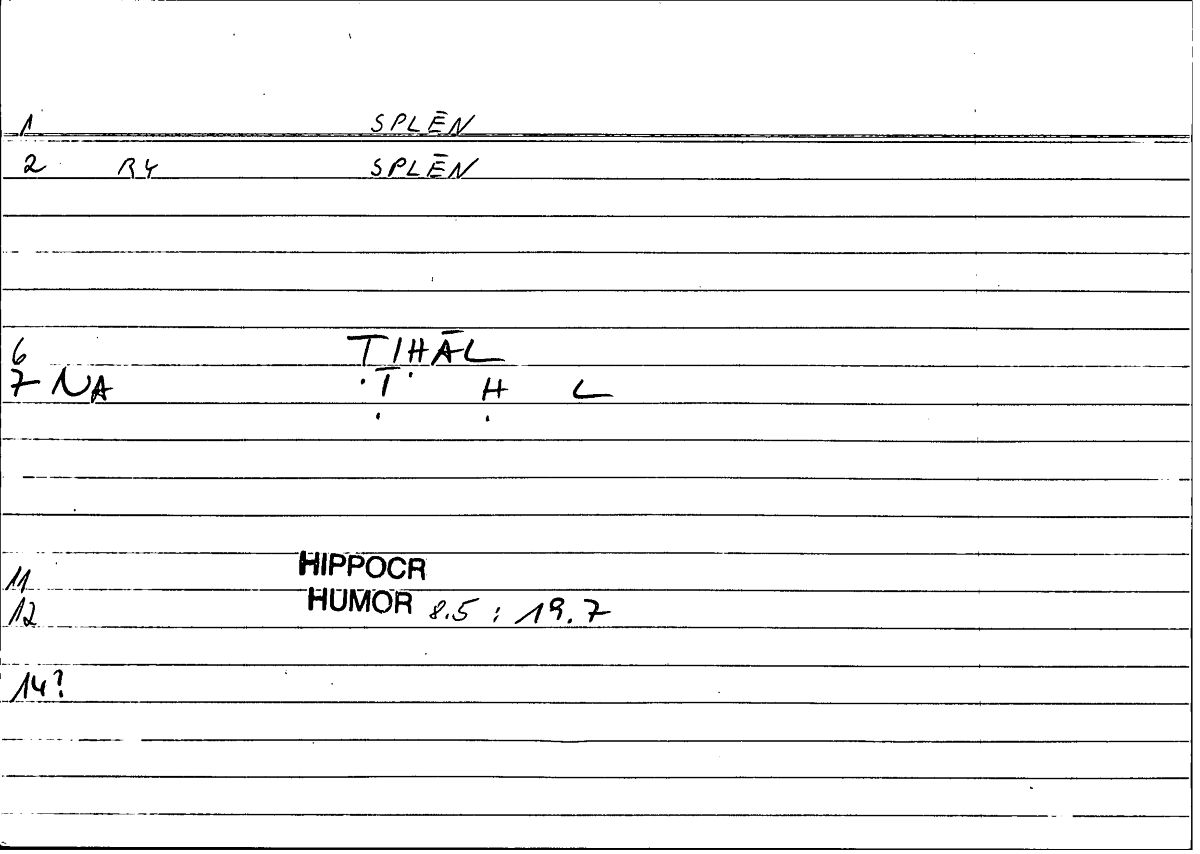 1 SPLĒN
2 R4 SPLĒN
6 TIHĀL
7 NA T H L
11 HIPPOCR
12 HUMOR 8.5 : 19.7
14?